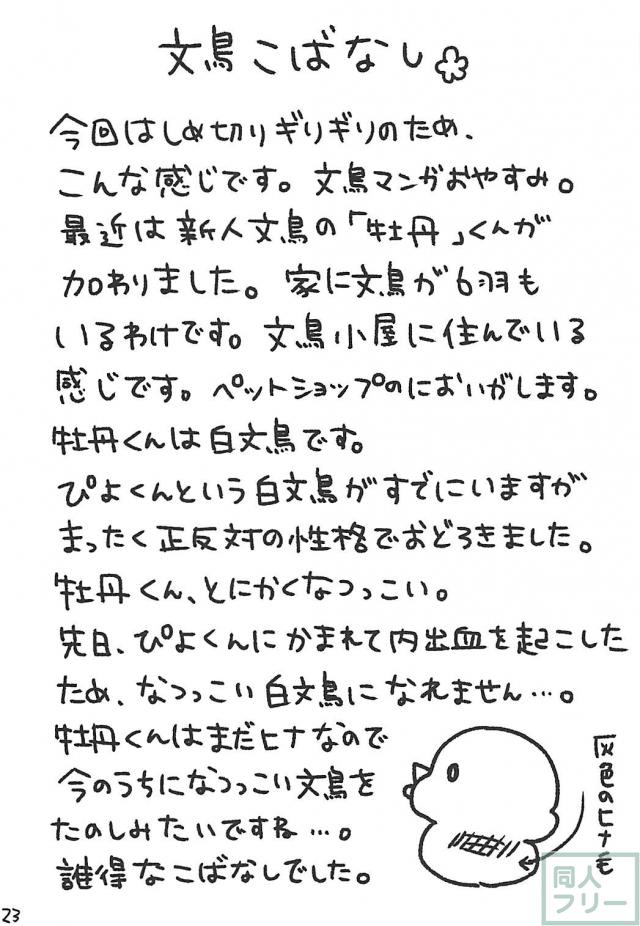 文鳥こばなし
今回はしめ切りギリギリのため、
こんな感じです。文鳥マンガおやすみ。
最近は新人文鳥の「牡丹」くんが
加わりました。家に文鳥が6羽も
いるわけです。文鳥小屋に住んでいる
感じです。ペットショップのにおいがします。
牡丹くんは白文鳥です。
ぴよくんという白文鳥がすでにいますが
まったく正反対の性格でおどろきました。
牡丹くん、とにかくなつっこい。
先日、ぴよくんにかまれて内出血を起こした
ため、なつっこい白文鳥になれません…。
牡丹くんはまだヒナなので
今のうちになつっこい文鳥を
たのしみたいですね…。
誰得なこばなしでした。
灰色のヒナ毛
同人
フリー
23